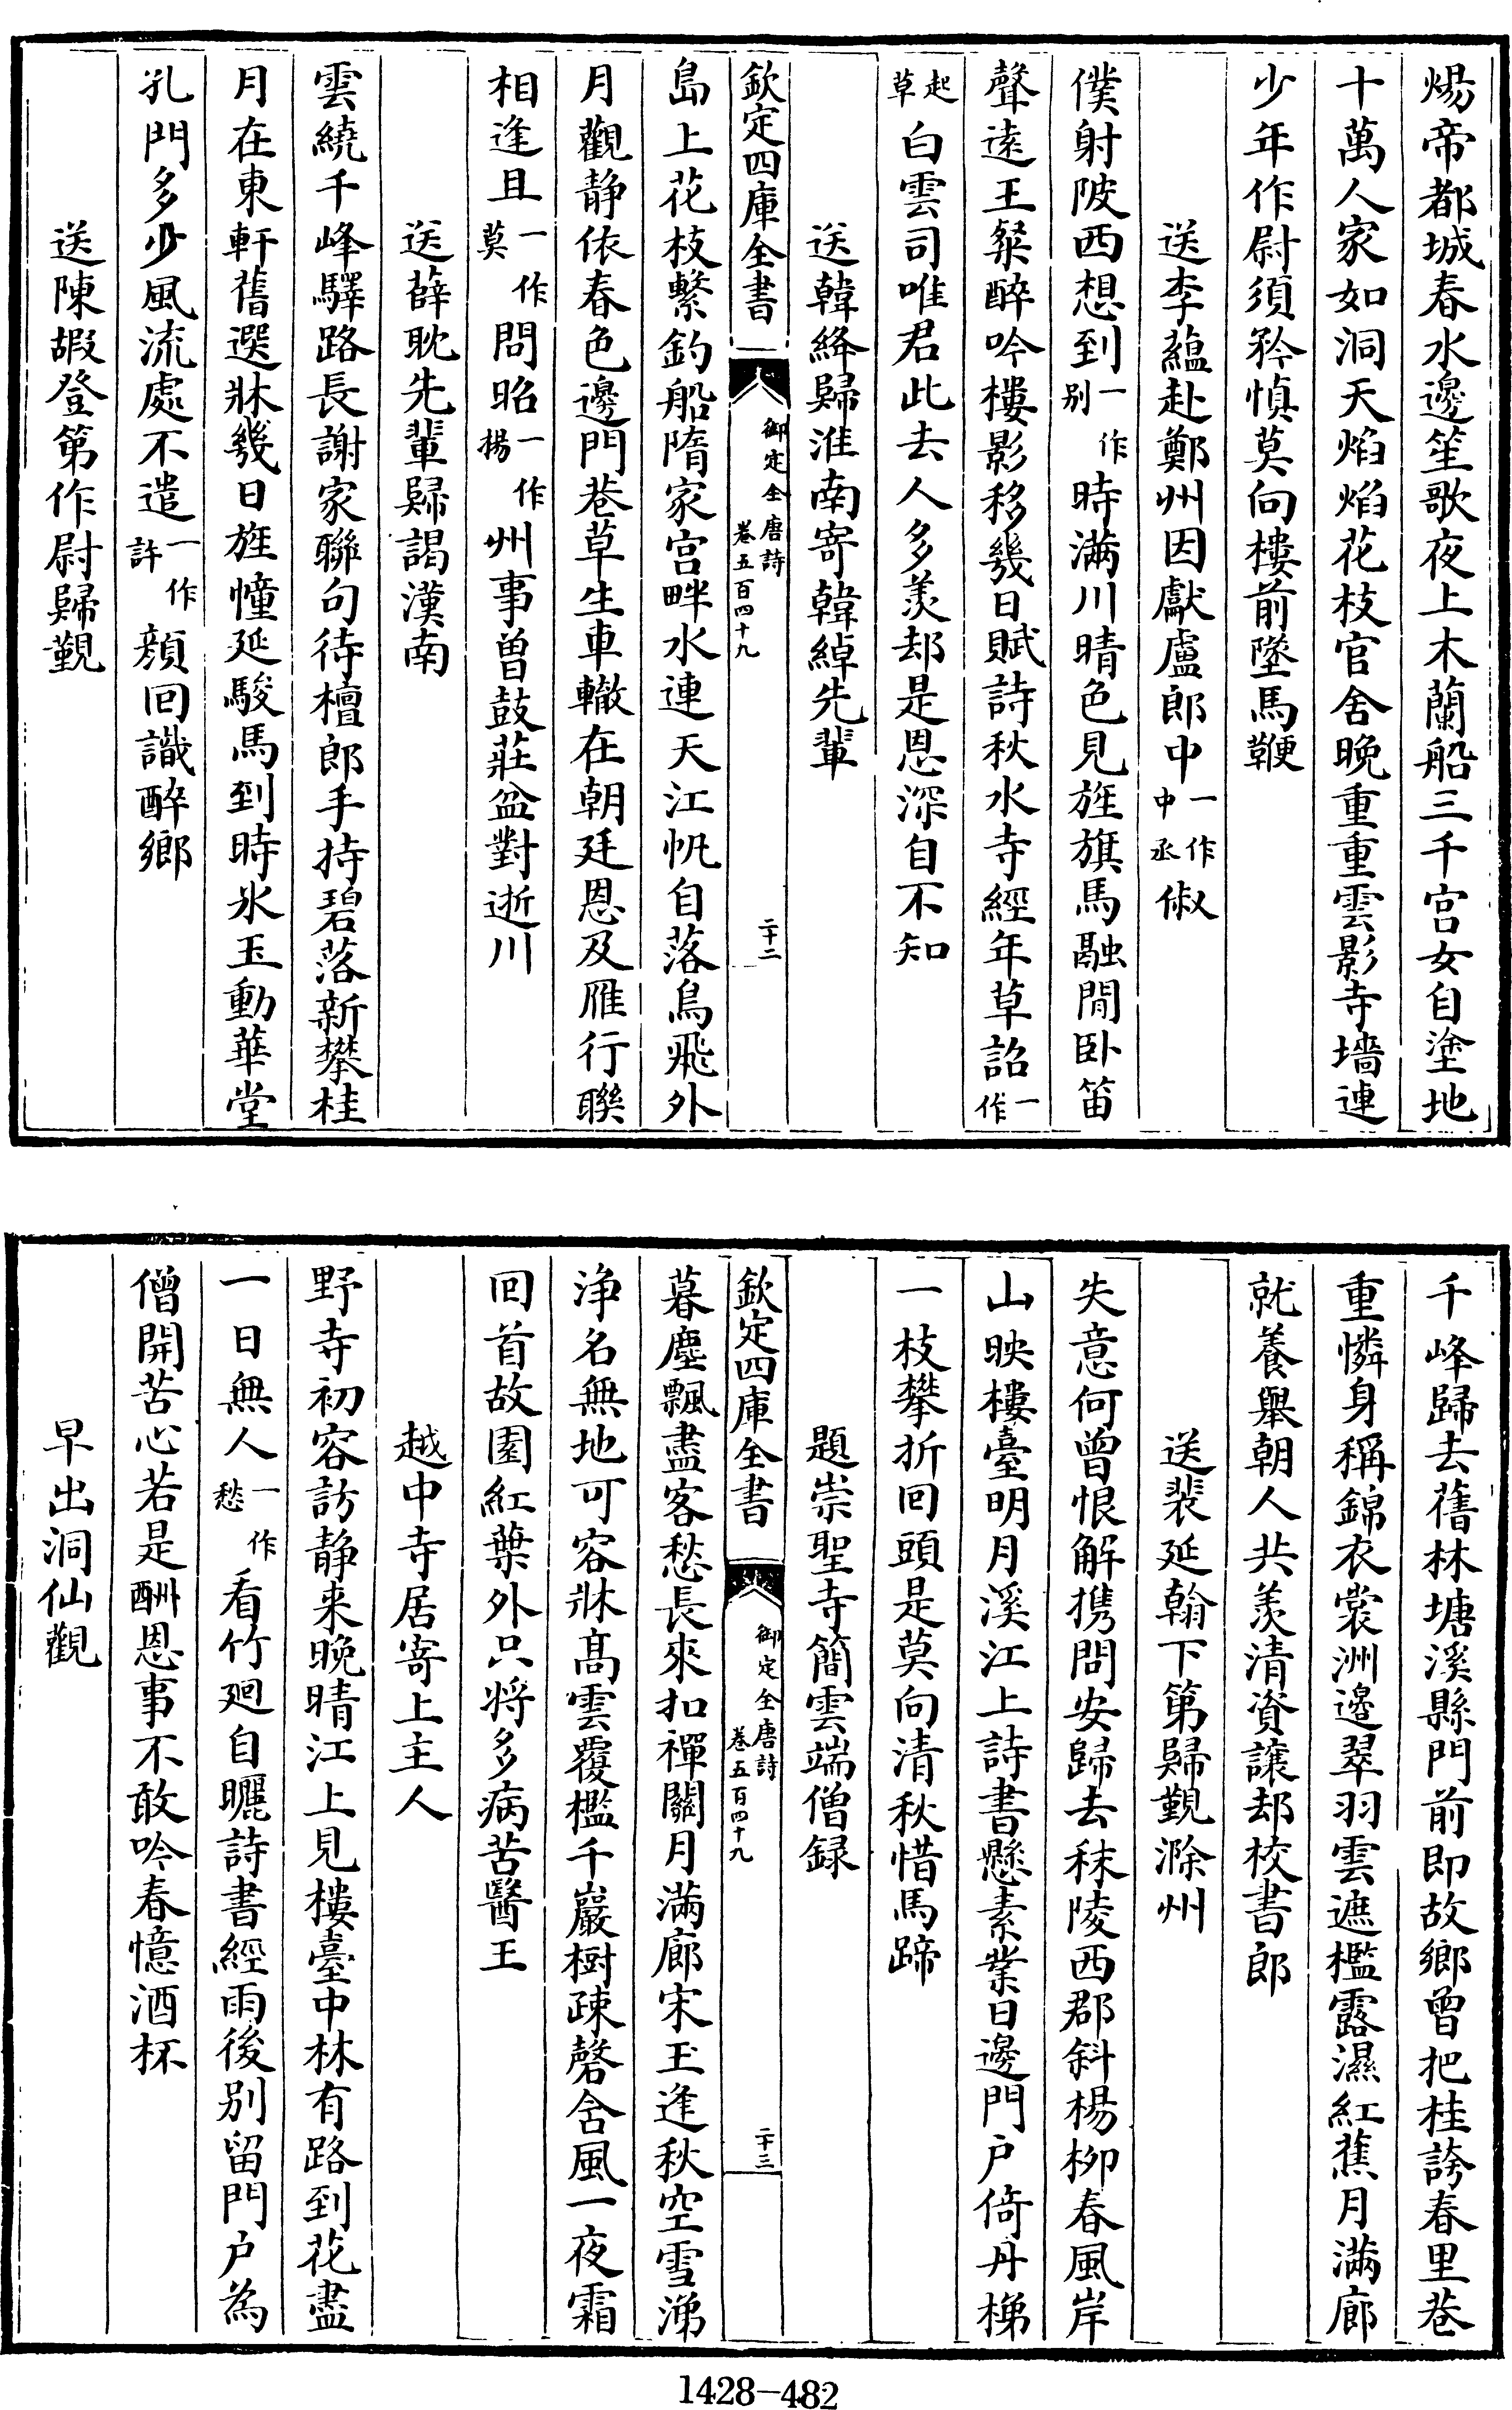 煬帝都城春水邊笙歌夜上木蘭船三千宮女自塗地
十萬人家如洞天焰焰花枝官舍晚重重雲影寺墻連
少年作尉須矜慎莫向樓前墜馬鞭
送李蘊赴鄭州因獻盧郎中一作中丞俶
僕射陂西想到一作别時滿川晴色見旌旗馬融閒卧笛
聲遠王粲醉吟樓影移幾日賦詩秋水寺經年草詔一作
起草白雲司唯君此去人多羡却是恩深自不知
送韓絳歸淮南寄韓綽先輩
欽定四庫全書 御定全唐詩 卷五百四十九 二十二
島上花枝繫釣船隋家宫畔水連天江帆自落鳥飛外
月觀静依春色邊門巷草生車轍在朝廷恩及雁行聯
相逢且一作莫問昭一作揚州事曾鼓莊盆對逝川
送薛耽先輩歸謁漢南
雲繞千峰驛路長謝家聯句待檀郎手持碧落新攀桂
月在東軒舊選牀幾日旌幢延駿馬到時氷玉動華堂
孔門多少風流處不遣一作許顔回識醉鄉
送陳嘏登第作尉歸覲
千峰歸去舊林塘溪縣門前即故鄉曾把桂誇春里巷
重憐身稱錦衣裳洲邊翠羽雲遮檻露濕紅蕉月滿廊
就養舉朝人共羡清資讓却校書郎
送裴延翰下第歸覲滁州
失意何曾恨解携問安歸去秣陵西郡斜楊柳春風岸
山映樓臺明月溪江上詩書懸素業日邊門户倚丹梯
一枝攀折回頭是莫向清秋惜馬蹄
題崇聖寺簡雲端僧録
欽定四庫全書 御定全唐詩 卷五百四十九 二十三
暮塵飄盡客愁長來扣禪關月滿廊宋玉逢秋空雪涕
浄名無地可容牀高雲覆檻千巖樹疎磬含風一夜霜
回首故園紅葉外只將多病苦醫王
越中寺居寄上主人
野寺初容訪静來晚晴江上見樓臺中林有路到花盡
一日無人一作愁看竹廻自曬詩書經雨後别留門户為
僧開苦心若是酬恩事不敢吟春憶酒杯
早出洞仙觀
1428-482